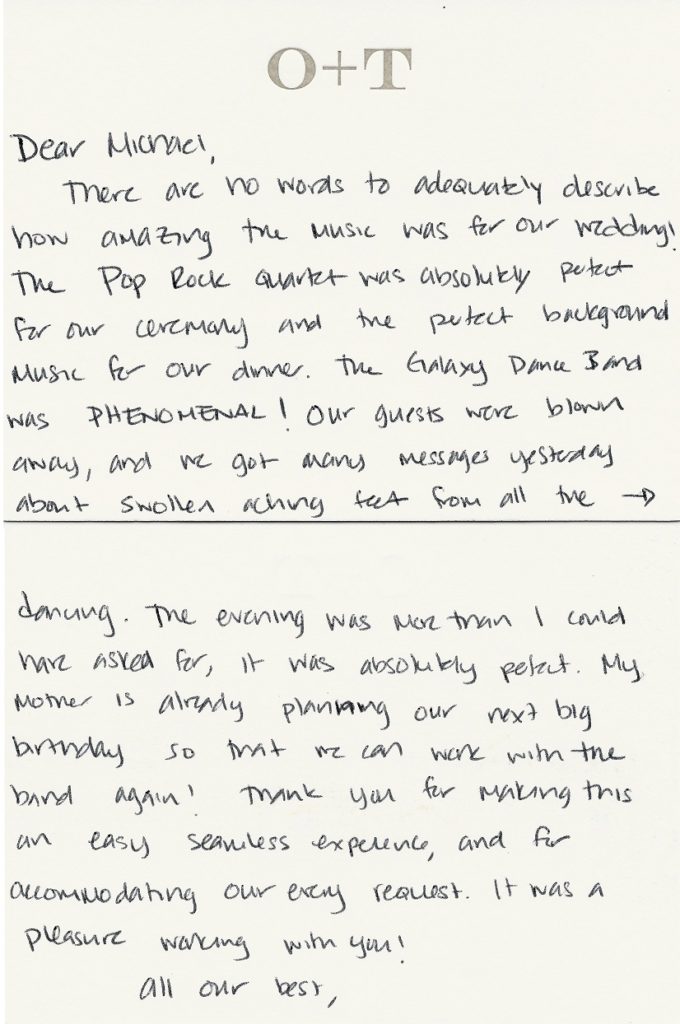 O+T
Dear Michael,
There are no words to adequately describe
how amazing the music was for our wedding!
The Pop Rock Quartet was absolutely perfect
for our ceremony and the perfect background
music for our dinner. The Galaxy Dance Band
was PHENOMENAL! Our guests were blown
away, and we got many messages yesterday
about swollen aching feet from all the →
dancing. The evening was more than I could
have asked for, it was absolutely perfect. My
mother is already planning our next big
birthday so that we can work with the
band again! Thank you for making this
an easy seamless experience, and for
accommodating our every request. It was a
pleasure working with you!
All our best,